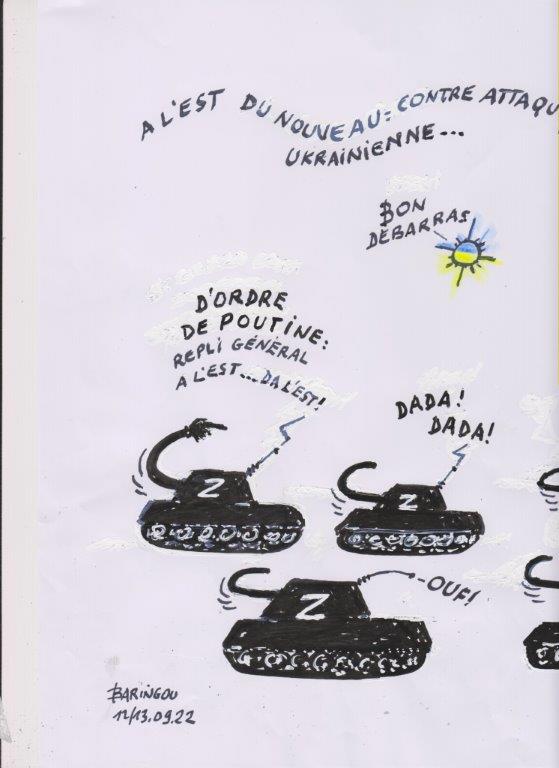 A L'EST DU NOUVEAU: CONTRE ATTAQU
UKRAINIENNE...
BON
DÉBARRAS
D'ORDRE
DE POUTINE:
REPLI GÉNÉRAL
A L'EST...DA L'EST!
DADA!
DADA!
Z
Z
Z
-OUF!
BARINGOU
12/13.09.22